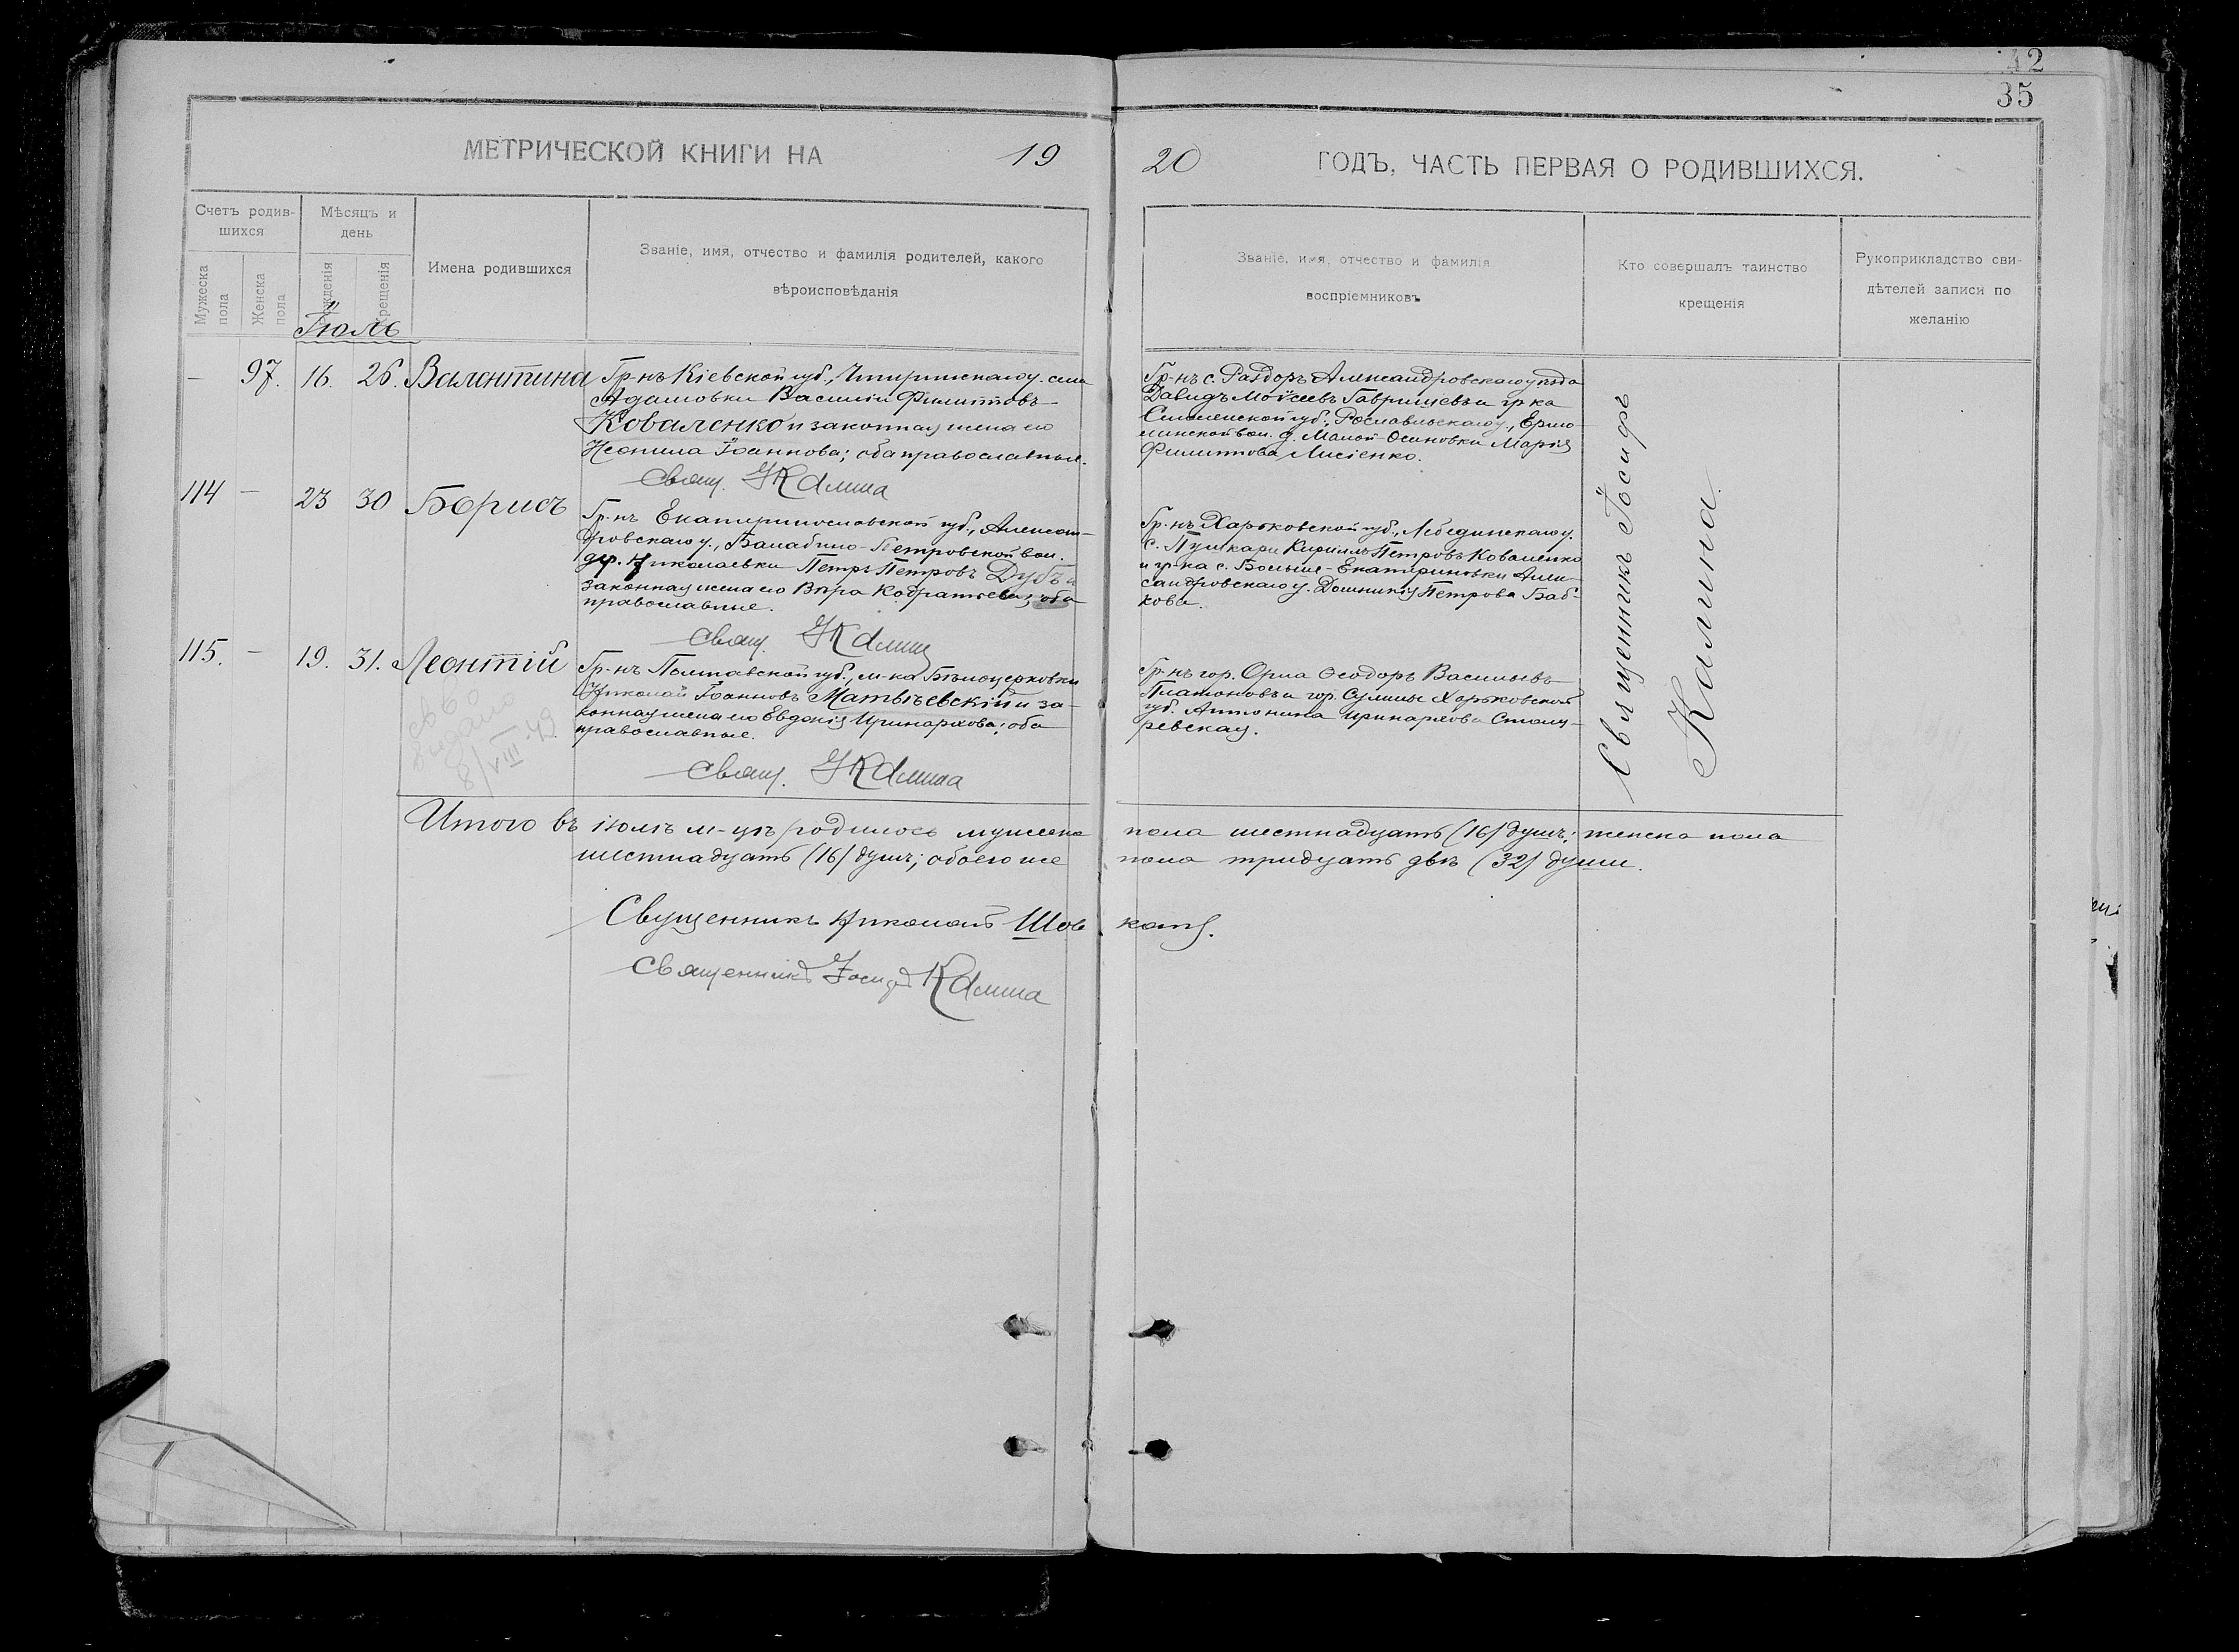 42
35
МЕТРИЧЕСКОЙ КНИГИ НА 19
20 ГОДЪ, ЧАСТЬ ПЕРВАЯ О РОДИВШИХСЯ.
Счетъ родив-
шихся
Мужеска
пола
Женска
пола
Мѣсяцъ и
день
рожденія
крещенія
Имена родившихся
Званіе, имя, отчество и фамилія родителей, какого
вѣроисповѣданія
Званіе, имя, отчество и фамилія
воспріемниковъ
Кто совершалъ таинство
крещенія
Рукоприкладство сви-
дѣтелей записи по
желанію
Іюль
— 97. 16. 26. Валентина
Гр-нъ Кіевской губ., Чигиринскаго у. села
Адамовки Василій Филипповъ
Коваленко и законная жена его
Неонила Іоаннова; оба православные.
Свящ. І Калина
Гр-нъ с. Раздоръ Александровскаго уѣзда
Давидъ Моѵсеевъ Гаврищевъ и гр-ка
Смоленской губ., Рославльскаго у., Ермо-
линской вол. д. Малой-Осиновки Марія
Филиппова Лисіенко.
114 — 23 30 Борисъ
Гр-нъ Екатеринославской губ., Алексан-
дровскаго у., Балабино-Петровской вол.
дер. Николаевки Петръ Петровъ Дубъ и
законная жена его Вѣра Кодратьева; оба
православные.
Свящ. І Калина
Гр-нъ Харьковской губ., Лебединскаго у.
с. Пушкари Кириллъ Петровъ Коваленко
и гр-ка с. Больше-Екатериновки Алек-
сандровскаго у. Домникія Петрова Баб-
кова.
115. — 19. 31. Леонтій
Гр-нъ Полтавской губ., м-ка Бѣлоцерковки
Николай Іоанновъ Матвѣевскій и за-
конная жена его Евдокія Иринархова; оба
православные.
Свящ. І Калина
Гр-нъ гор. Орла Ѳеодоръ Васильевъ
Платоновъ и гор. Сумы Харьковской
губ. Антонина Иринархова Столя-
ревская.
св-во
выдано
8/VIII 49
Священникъ Іосифъ
Калина.
Итого въ іюлѣ м-цѣ родилось мужеска пола шестнадцать (16) душъ; женска пола
шестнадцать (16) душъ; обоего же пола тридцать двѣ (32) души.
Священникъ Николай Шов
Священникъ Іосифъ Калина